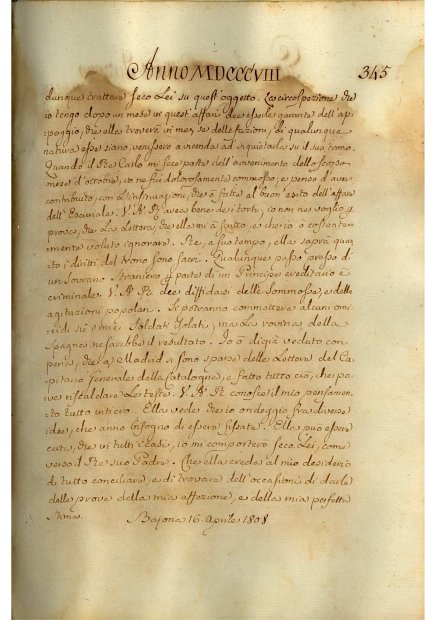 Anno MDCCCVIII
345
dunque trattare seco Lei su quest'oggetto. La circospezione che
io tengo dopo un mese in quest'affare dee essele garante dell'ap=
poggio, che ella troverà in me, se delle fazioni, di qualunque
natura esse siano, venissero a vicenda ad inquietarla su il suo trono.
Quando il Re Carlo mi fece parte dell'avvenimento dello scorso
mese d'ottobre, io ne fui dolorosamente commosso, e penso d'aver
contribuito, con l'insinuazioni, che ò fatte al buon'esito dell'affare
dell'Escuriale. V. A. R. avea bene dei torti, io non ne voglio p
prova, che la Lettera che ella mi à scritto, e che io ò costante=
mente voluto ignorare. Re, a suo tempo, ella saprà quan
to i diritti del trono sono sacri. Qualunque passo presso di
un Sovrano Straniero p parte di un Principe ereditario è
criminale. V. A. R. dee diffidarsi delle Sommosse, e delle
agitazioni popolari. Si potranno commettere alcuni omi=
cidi su i miei Soldati isolati, ma la rovina della
Spagna ne sarebbe il resultato. Io ò digià veduto con
pena, che a Madrid si sono sparse delle Lettere del Ca=
pitano Generale della Catalogna, e fatto tutto ciò, che po=
teva riscaldare le teste. V. A. R. conosce il mio pensamen
to tutto intiero. Ella vede, che io ondeggio fra diverse
idee, che anno bisogno di essere fissate. Ella può essere
certa, che in tutti i casi, io mi comporterò seco Lei, come
verso il Re suo Padre. Che ella creda al mio desiderio
di tutto conciliare, e di trovare dell'occasioni di darle
delle prove della mia affezione, e della mia perfetta
stima.
Bajona 16 Aprile 1808